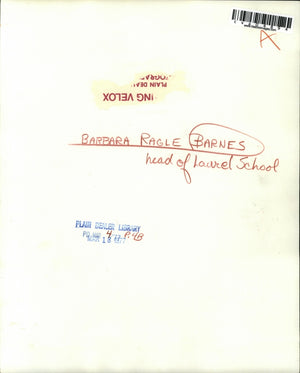 A
PLAIN DEAL
OGRAP
ING VELOX
BARBARA RAGLE BARNES
head of Laurel School
PLAIN DEALER LIBRARY
MAR 18